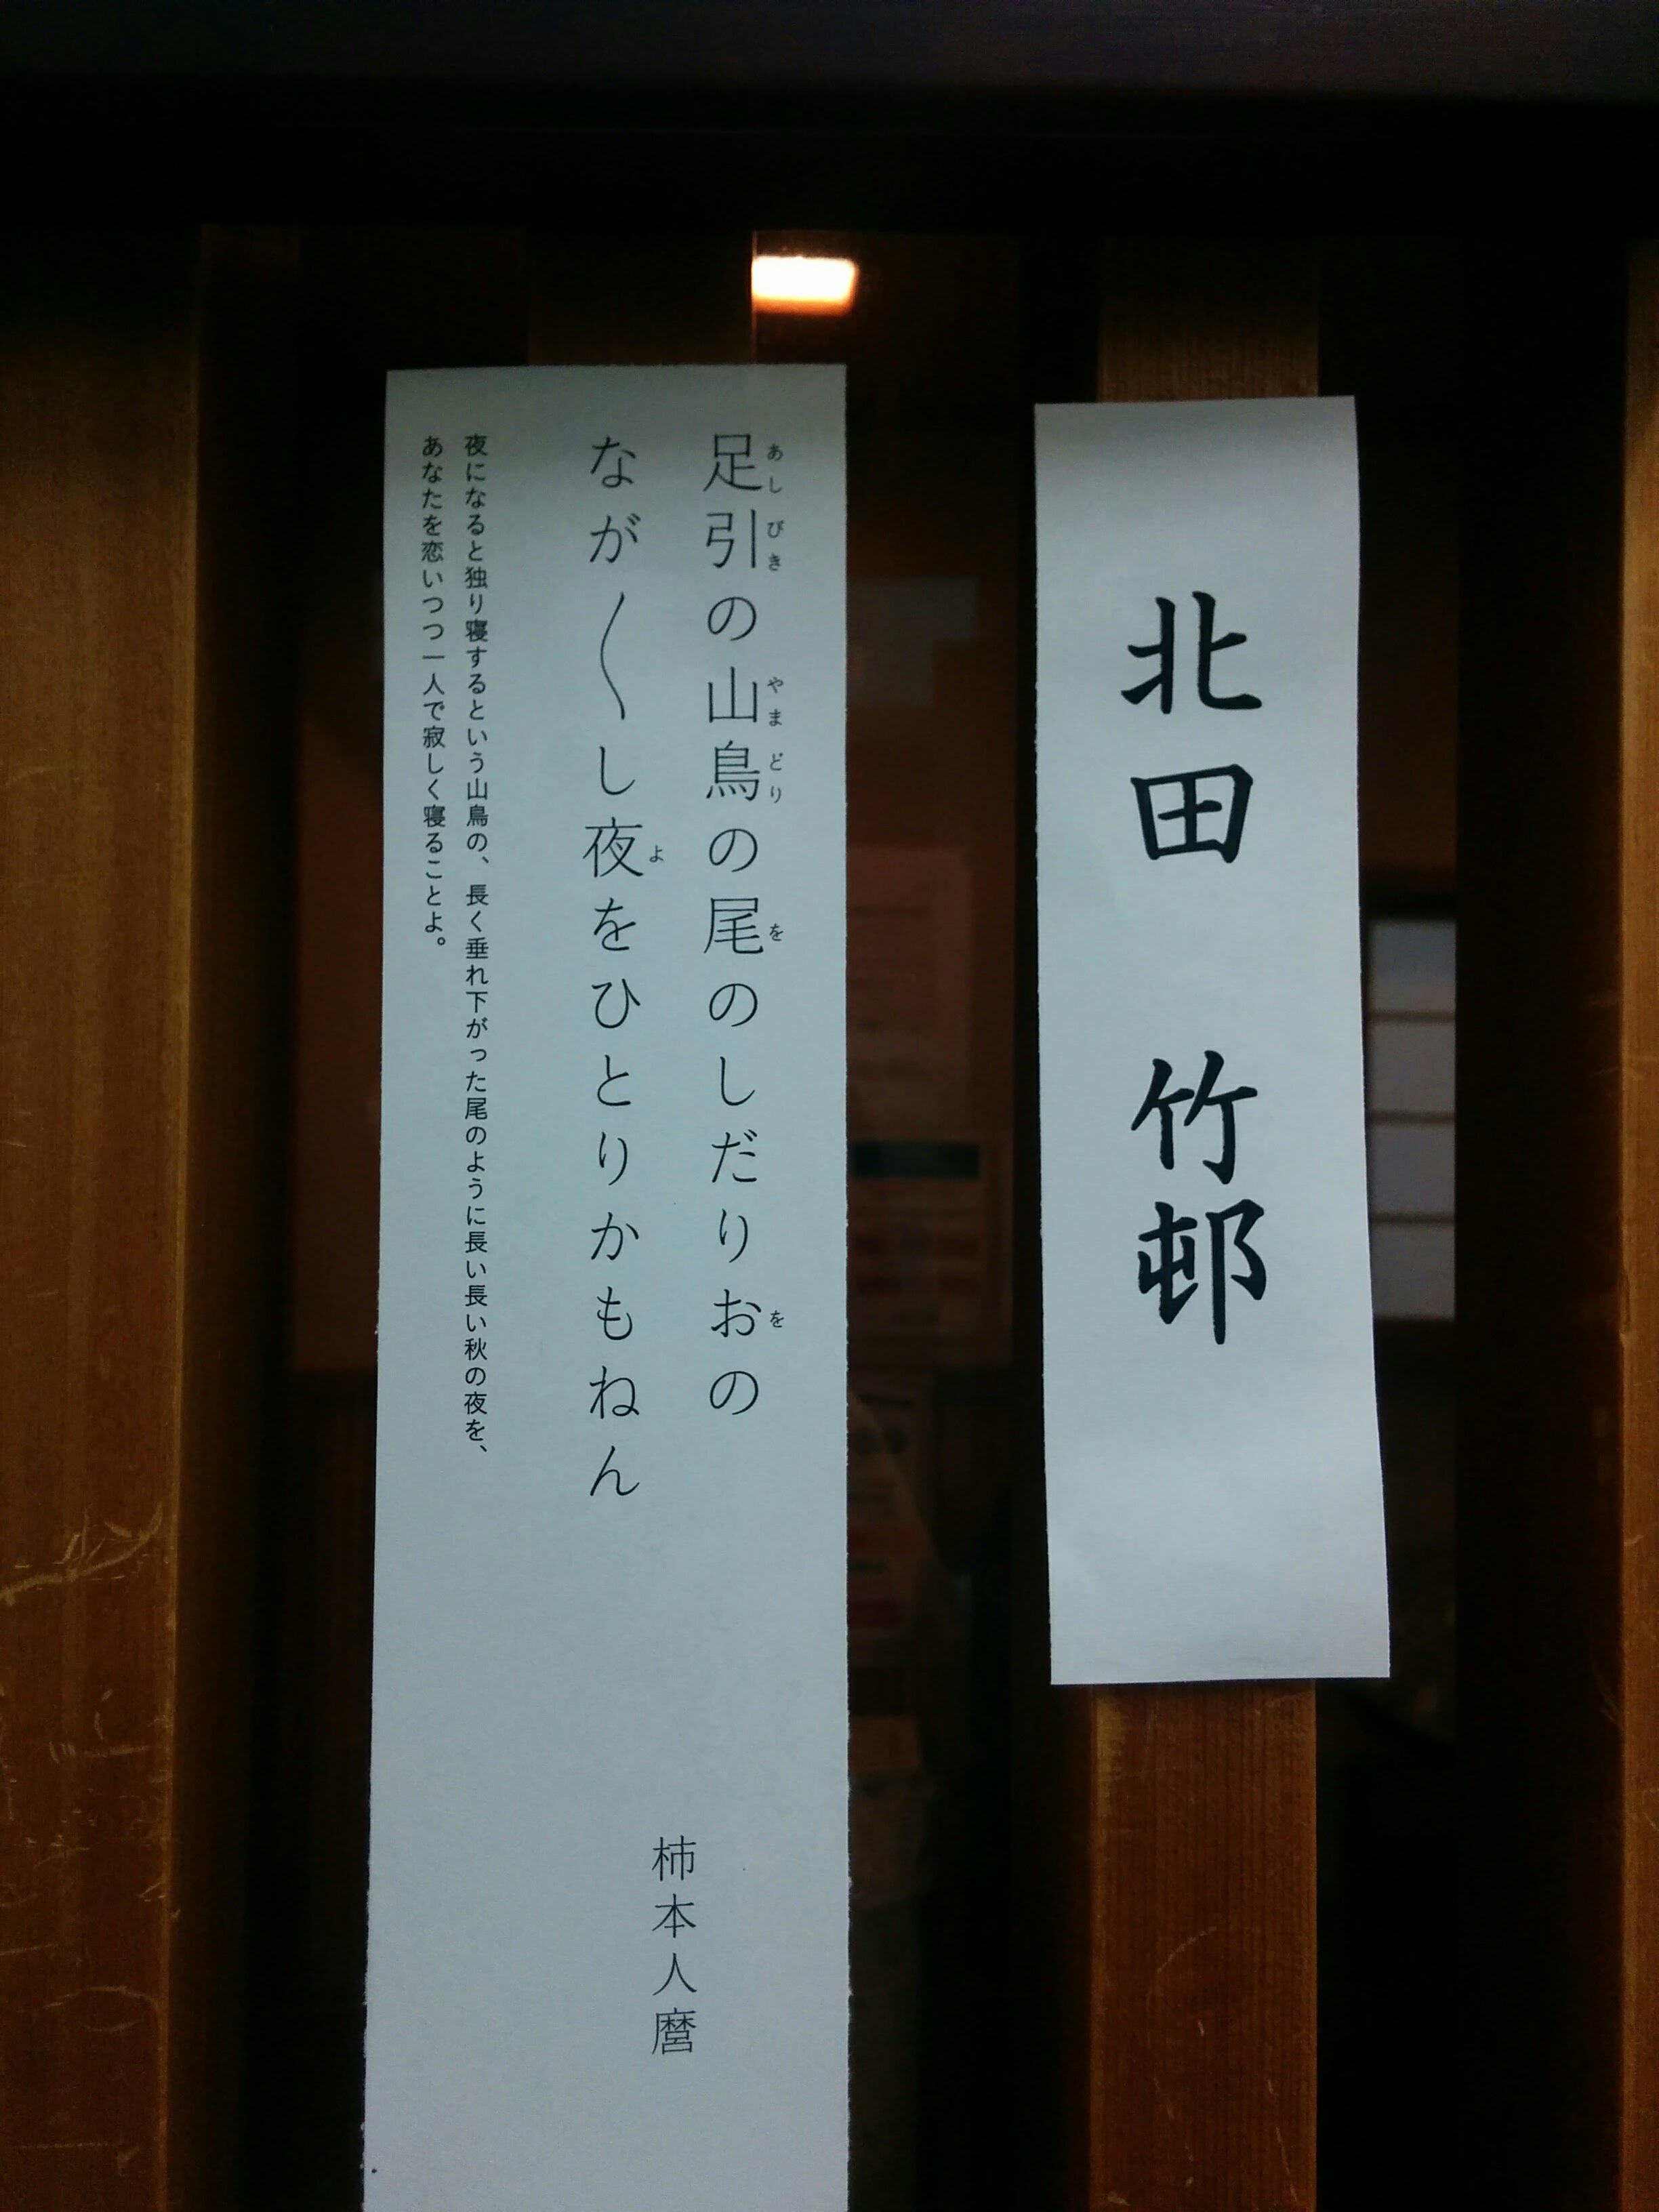 北田 竹邨
足引の山鳥の尾のしだりおの
あしびき やまどり を を
なが〱し夜をひとりかもねん
よ
夜になると独り寝するという山鳥の、長く垂れ下がった尾のように長い長い秋の夜を、
あなたを恋いつつ一人で寂しく寝ることよ。
柿本人麿